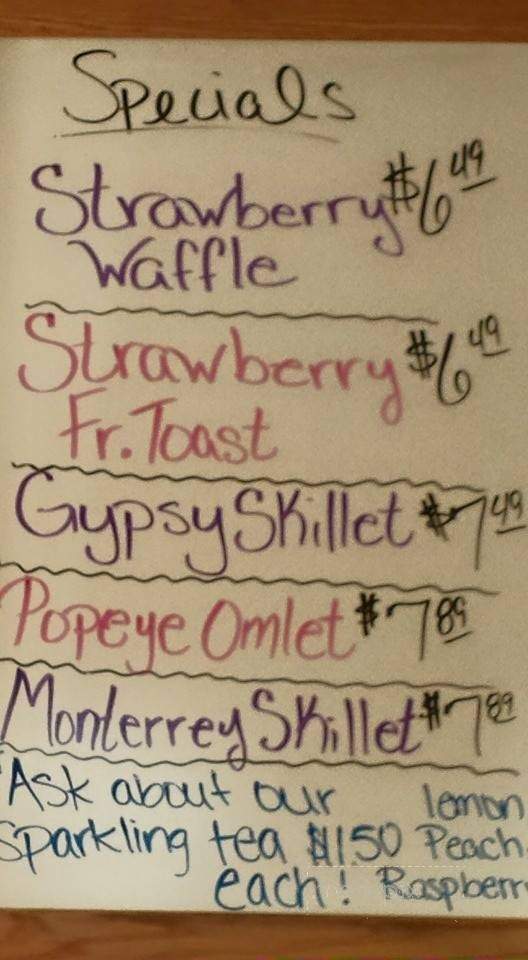 Specials
Strawberry $6 49
Waffle
Strawberry $6 49
Fr. Toast
Gypsy Skillet $7 49
Popeye Omlet $7 89
Monterrey Skillet $7 89
Ask about our lemon
Sparkling tea $1.50 Peach
each! Raspberr